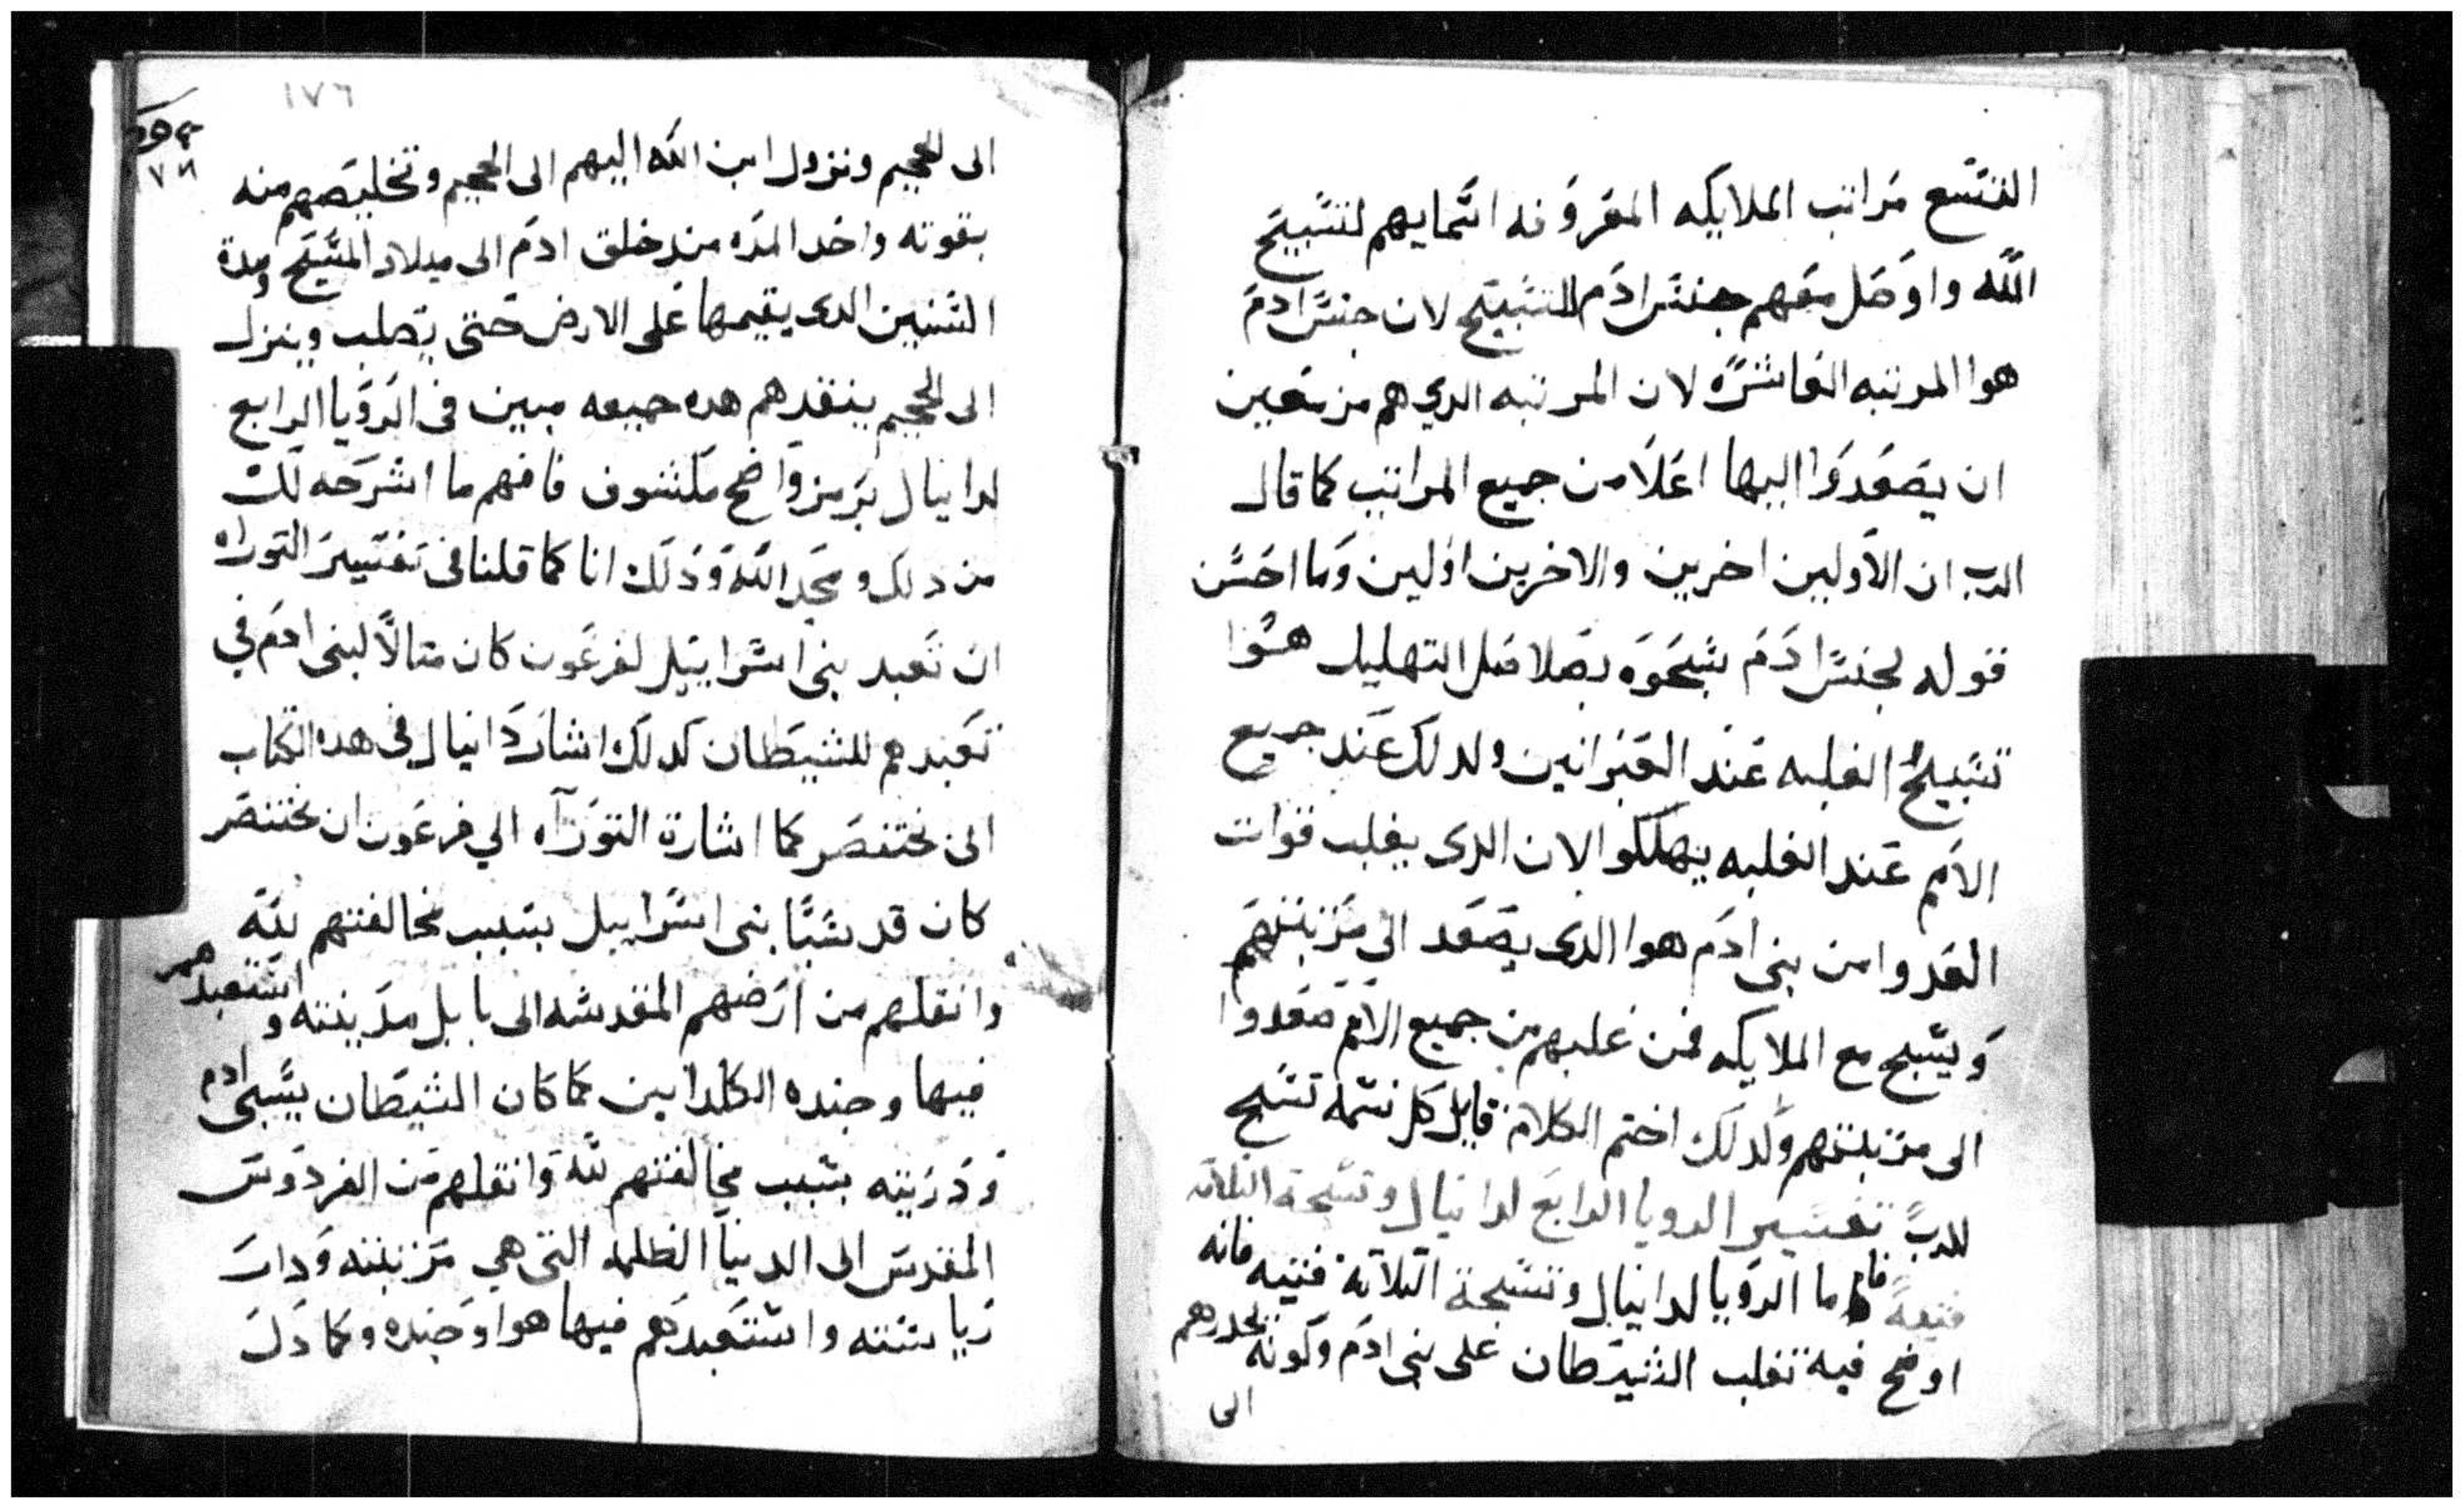 التسع مراتب الملايكه المعروفه اسمايهم لتسبيح
الله واوصل معهم جنس ادم للتسبيح لان جنس ادم
هوا المرتبه العاشره لان المرتبه الدي هم مزمعين
ان يصعدوا اليها اعلا من جميع المراتب كما قال
الرب ان الاولين اخرين والاخرين اولين وما احسن
قوله لجنس ادم سبحوه بصلاصل التهليل هوا
تسبيح الغلبه عند العبرانين ولدلك عند جميع
الامم عند الغلبه يهللوا لان الدى يغلب قوات
العدوا من بنى ادم هوا الدى يصعد الى منزلتهم
ويسبح مع الملايكه فمن غلبهم من جميع الامم صعدوا
الى منزلتهم ولدلك اختم الكلام قايل كل نسمه تسبح
للرب تفسير الرويا الرابع لدانيال وتسبحة التلاته
فتيه فاما الرويا لدانيال وتسبحة التلاته فتيه فانه
اوضح فيه تغلب الشيطان على بنى ادم وكونه يحدرهم
الى
١٧٦
١٧٦
الى الجحيم ونزول ابن الله اليهم الى الجحيم وتخليصهم منه
بقوته واخد المده مند خلق ادم الى ميلاد المسيح ومدة
السنين الدى يقيمها على الارض حتى يصلب وينزل
الى الجحيم ينقدهم هده جميعه مبين فى الرويا الرابع
لدانيال برمز واضح مكشوف فافهم ما اشرحه لك
من دلك ومجد الله ودلك انا كما قلنا فى تفسير التوراه
ان تعبد بنى اسراييل لفرعون كان متالا لبنى ادم في
تعبدهم للشيطان كدلك اشار دانيال فى هده الكتاب
الى بختنصر كما اشارة التوراه الي فرعون ان بختنصر
كان قد سبا بنى اسراييل بسبب مخالفتهم لله
وانقلهم من ارضهم المقدسه الى بابل مدينته واستعبدهم
فيها وجنده الكلدانين كما كان الشيطان يسبى ادم
ودريته بسبب مخالفتهم لله وانقلهم من الفردوس
المقدس الى الدنيا الظلمه التى هي منزلته ودار
رياسته واستعبدهم فيها هوا وجنده وكما دل